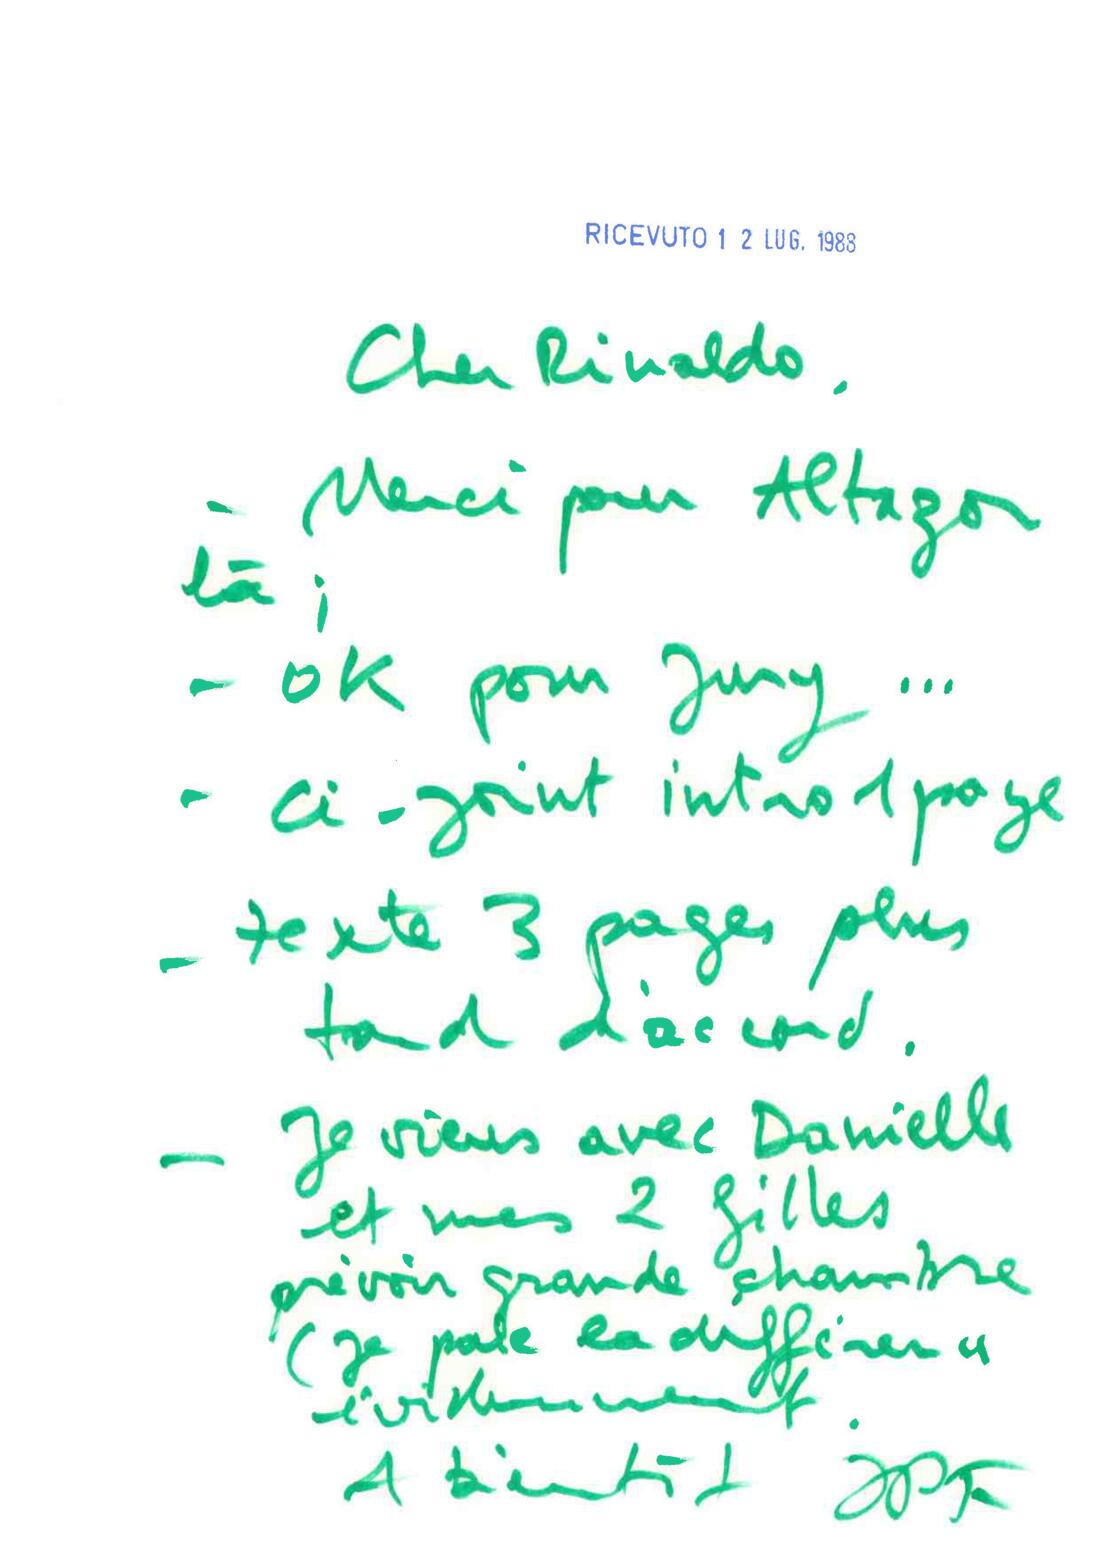 RICEVUTO 12 LUG. 1988
Cher Rinaldo.
- Merci pour Altagor
là ;
- OK pour Jury ...
- Ci-joint intro 1 page
- texte 3 pages plus
tard d'accord.
- Je viens avec Danielle
et mes 2 filles
prévoir grande chambre
(je paie la différence
évidemment.
A bientôt JPF